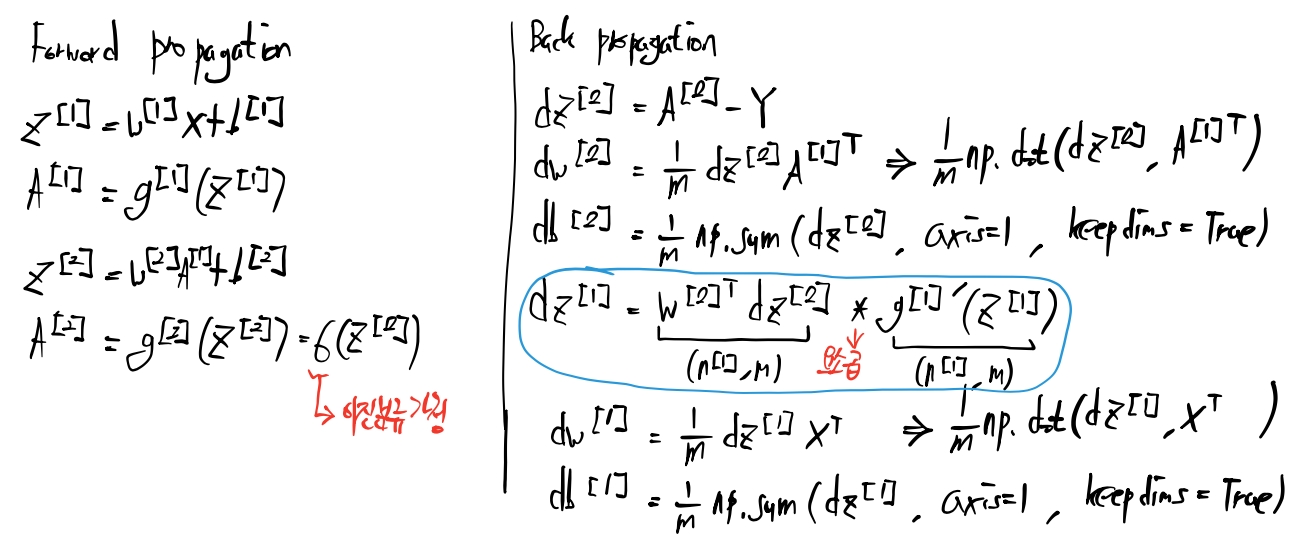 Forward propagation
Z[1] = W[1]X + b[1]
A[1] = g[1](Z[1])
Z[2] = W[2]A[1] + b[2]
A[2] = g[2](Z[2]) = σ(Z[2])
→ 이진분류 가정
Back propagation
dZ[2] = A[2] - Y
dW[2] = 1/m dZ[2]A[1]T ⇒ 1/m np.dot(dZ[2], A[1]T)
db[2] = 1/m np.sum(dZ[2], axis=1, keepdims=True)
dZ[1] = W[2]T dZ[2] * g[1]′(Z[1])
(n[1], m) (n[1], m)
dW[1] = 1/m dZ[1]XT ⇒ 1/m np.dot(dZ[1], XT)
db[1] = 1/m np.sum(dZ[1], axis=1, keepdims=True)